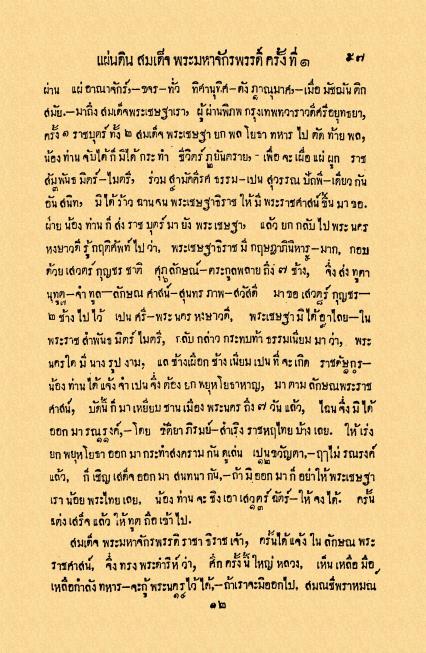 แผ่นดิน สมเด็จ พระมหาจักรพรรดิ์ ครั้ง ที่ ๑ ๕๗
ผ่าน แผ่ อาณาจักร์,–ขจร–ทั่ว ทิศานุทิศ–ดัง ภาณุมาศ,–เมื่อ มัชฌันติก
สมัย.–มาถึง สมเด็จพระเชษฐาเรา, ผู้ ผ่านพิภพ กรุงเทพทวาราวดีศรีอยุทธยา,
ครั้ง ๑ ราชบุตร์ ทั้ง ๒ สมเด็จ พระเชษฐา ยก พล โยธา ทหาร ไป ตัด ท้าย พล,
น้อง ท่าน จับได้ ก็ มิได้ กระทำ ชีวิตร์ ภูยันตราย,– เพื่อ จะ เผื่อ แผ่ ผูก ราช
สัมพันธ มิตร์–ไมตรี, ร่วม สามัคคีรศ ธรรม–เปน สุวรรณ บัถพี–เดียว กัน
อัน สนิท, มิได้ ร้าว ฉาน จน พระเชษฐาธิราช ให้ มี พระราชสาศน์ ขึ้น มา ขอ.
ฝ่าย น้อง ท่าน ก็ ส่ง ราช บุตร์ มา ยัง พระเชษฐา, แล้ว ยก กลับ ไป พระ นคร
หงษาวดี รู้ กฤติศัพท์ ไป ว่า, พระเชษฐาธิราช มี กฤษฎาภินิหาร–มาก, กอบ
ด้วย เสวตร์ กุญชร ชาติ ศุภลักษณ์–ตระกูลพลาย ถึง ๗ ช้าง, จึ่ง ส่ง ทูตา
นุทูต–จำ ทูล–ลักษณ ศาสน์–สุนทร ภาพ–สวัสดี มา ขอ เสวตร์ กุญชร–
๒ ช้าง ไป ไว้ เปน ศรี–พระ นคร หงษาวดี, พระเชษฐา มิได้ อาไลย–ใน
พระราช สำพันธ มิตร์ ไมตรี, กลับ กล่าว กระทบท้า ธรรมเนียม มา ว่า, พระ
นครใด มี นาง รูป งาม, แล ช้างเผือก ช้าง เนียม เปน ที่ จะ เกิด
น้อง ท่าน ได้ แจ้ง จำ เปน จึ่ง ต้อง ยก พยุหโยธาหาญ, มา ตาม ลักษณพระราช
ศาสน์, บัดนี้ ก็ มา เหยียบ ชาน เมือง พระนคร ถึง ๗ วัน แล้ว, ไฉน จึ่ง มิ ได้
ออก มา รณรงค์,–โดย ขัติยา ภิรมย์–สำเริง ราชหฤไทย บ้าง เลย. ให้ เร่ง
ยก พยุหโยธา ออก มา กระทำ สงคราม กัน ดูเล่น เปนขวัญตา,–ฤๅไม่ รณรงค์
แล้ว, ก็ เชิญ เสด็จ ออก มา สนทนา กัน,–ถ้า มิ ออก มา ก็ อย่าให้ พระเชษฐา
เรา น้อย พระไทย เลย, น้อง ท่าน จะ ชิง เอา เสวตร์ ฉัตร์–ให้ จง ได้. ครั้น
แต่ง เสร็จ แล้ว ให้ ทูต ถือ เข้า ไป.
สมเด็จ พระมหาจักรพรรดิ ราชา ธิราช เจ้า, ครั้นได้ แจ้ง ใน ลักษณ พระ
ราชศาสน์, จึ่ง ทรง พระดำริห์ ว่า, ศึก ครั้ง นี้ ใหญ่ หลวง, เห็น เหลือ มือ
เหลือ กำลัง ทหาร–จะ กู้ พระนครไว้ ได้,–ถ้าเราจะมิออกไป, สมณชีพราหมณ์
๑๒